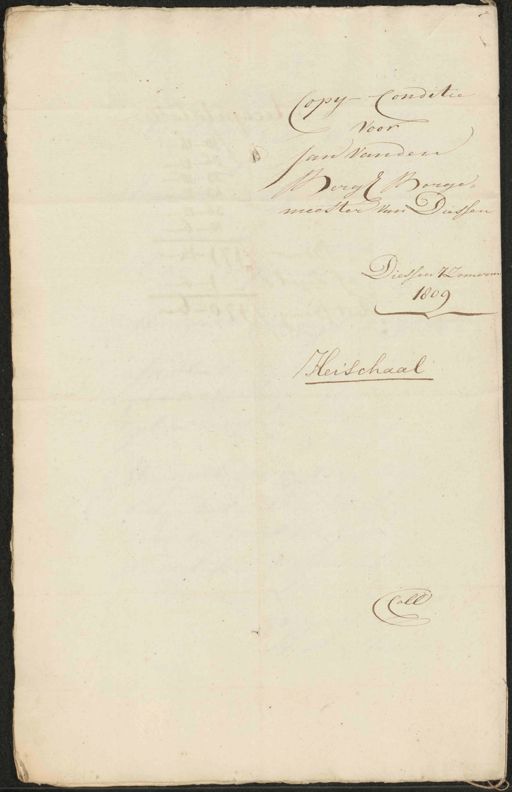 Copy-Conditie
Voor
Jan Vanden
Borg Borge,
meester van Diessen
Diessen 7 Zomerm
1809
Heischaal
Coll